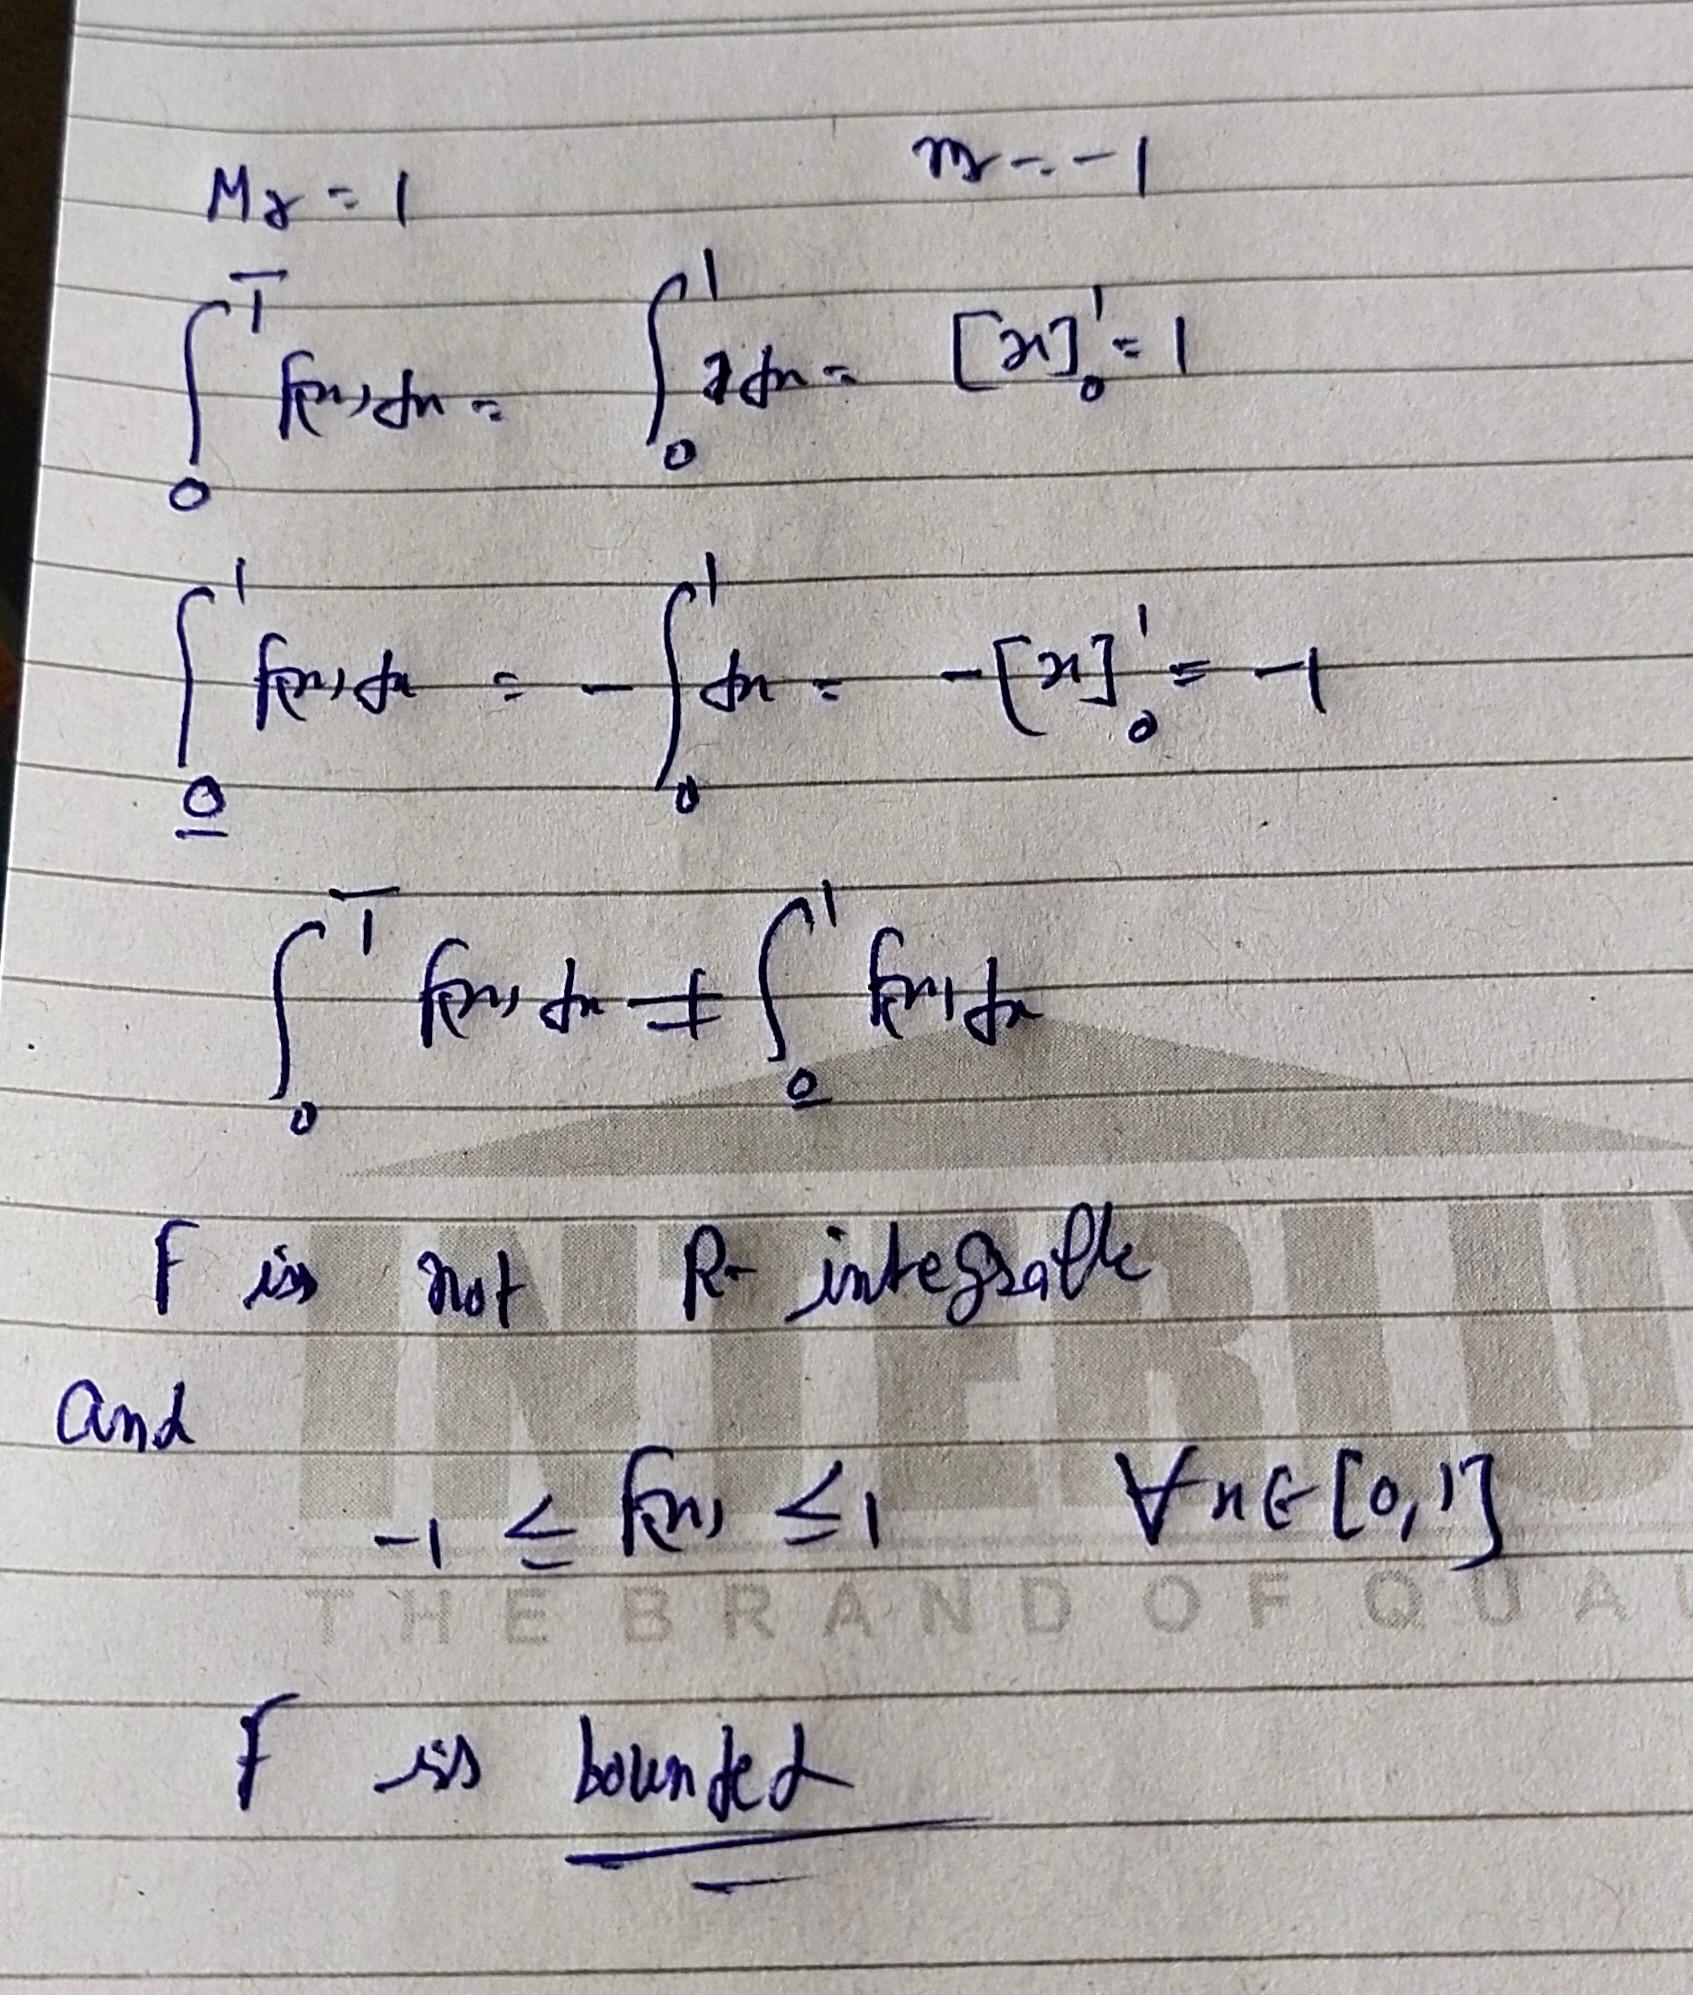 Mr = 1 mr = -1
∫₀^1̅ f(x) dx = ∫₀¹ 1 dx = [x]₀¹ = 1
∫_0̲^1 f(x) dx = -∫₀¹ dx = -[x]₀¹ = -1
∫₀^1̅ f(x) dx ≠ ∫_0̲^1 f(x) dx
F is not R- integrable
INTERLU
and
-1 ≤ f(x) ≤ 1 ∀x∈[0,1]
THE BRAND OF QUAL
F is bounded